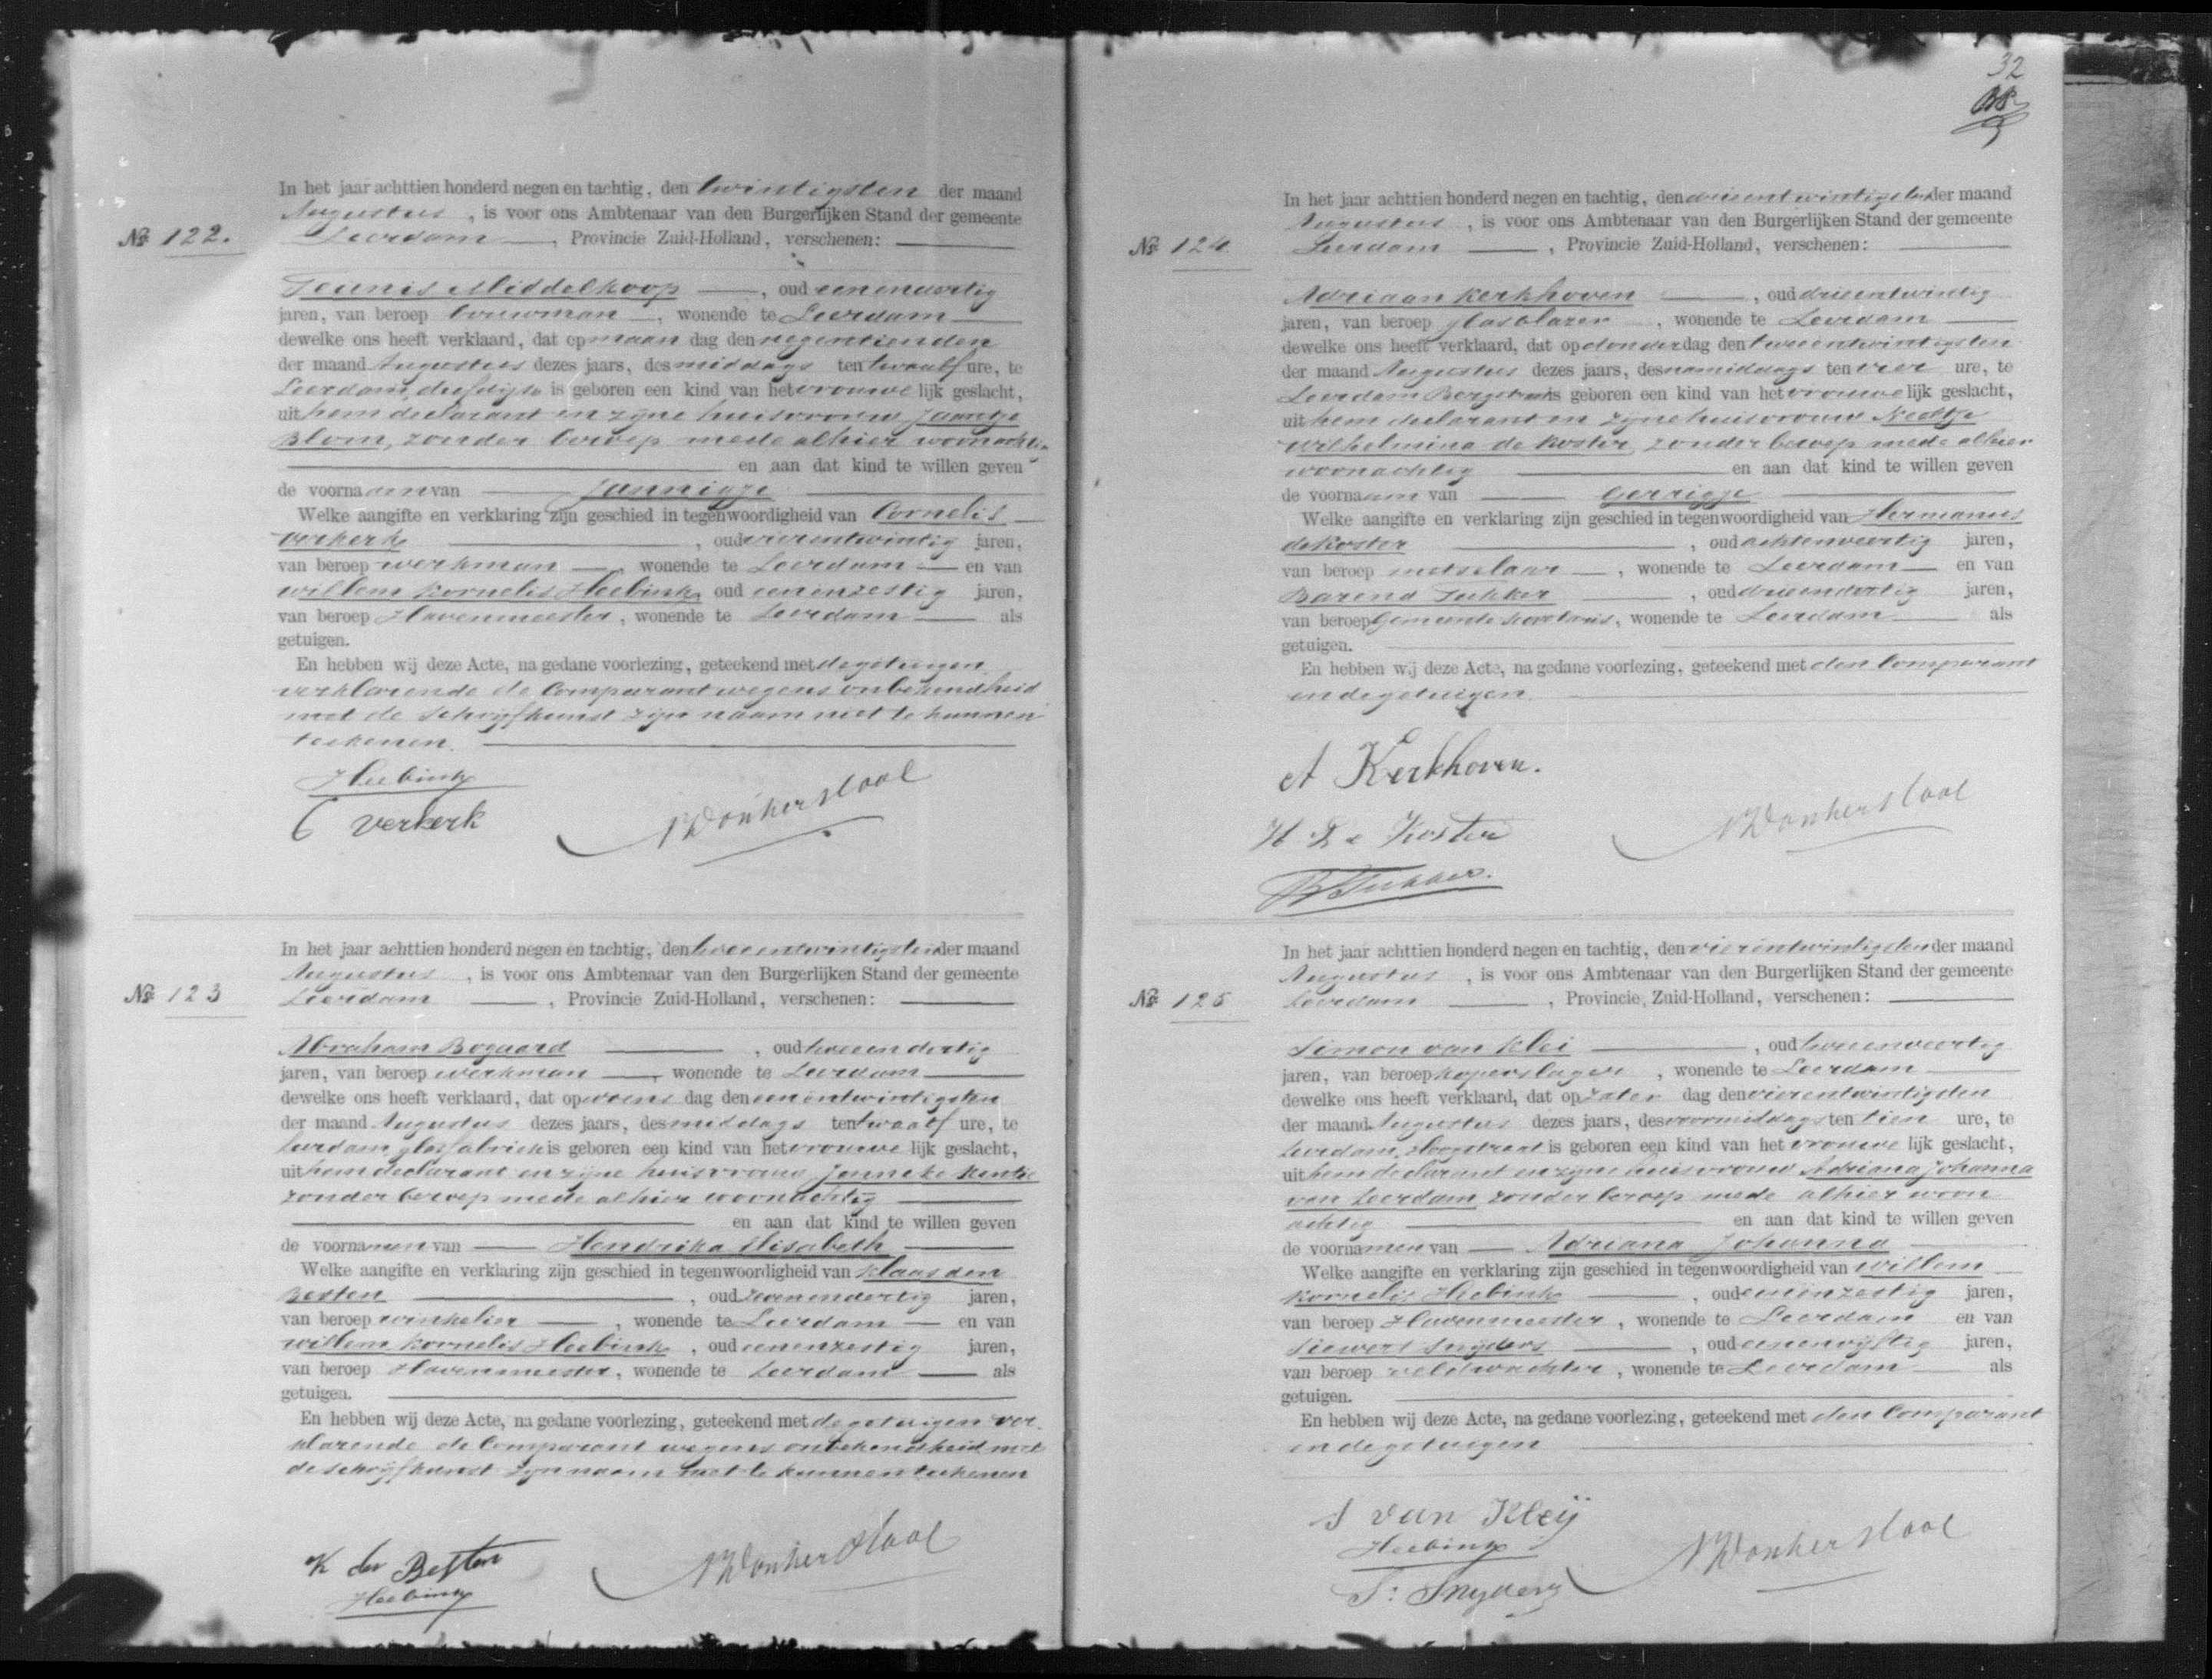 In het jaar achttien honderd negen en tachtig, den twintigsten der maand
Augustus, is voor ons Ambtenaar van den Burgerlijken Stand der gemeente
No 122. Leerdam, Provincie Zuid-Holland, verschenen:
Teunis Middelkoop, oud eenenveertig
jaren, van beroep bouwman, wonende te Leerdam
dewelke ons heeft verklaard, dat op maan dag den negentienden
der maand Augustus dezes jaars, des middags ten twaalf ure, te
Leerdam, is geboren een kind van het vrouwe lijk geslacht,
uit hem declarant en zijne huisvrouw Jaantje
Blom, zonder beroep mede alhier woonachtig
en aan dat kind te willen geven
de voornamen van Jannigje
Welke aangifte en verklaring zijn geschied in tegenwoordigheid van Cornelis
Verkerk, oud vierentwintig jaren,
van beroep werkman, wonende te Leerdam en van
Willem Kornelis Heebink, oud eenenzestig jaren,
van beroep Havenmeester, wonende te Leerdam als
getuigen.
En hebben wij deze Acte, na gedane voorlezing, geteekend met de getuigen
verklarende de Comparant wegens onbekendheid
met de schrijfkunst zijn naam niet te kunnen
teekenen.
Heebink
C Verkerk
In het jaar achttien honderd negen en tachtig, den tweeentwintigsten der maand
Augustus, is voor ons Ambtenaar van den Burgerlijken Stand der gemeente
No 123 Leerdam, Provincie Zuid-Holland, verschenen:
Abraham Bogaard, oud tweeendertig
jaren, van beroep werkman, wonende te Leerdam
dewelke ons heeft verklaard, dat op woens dag den eenentwintigsten
der maand Augustus dezes jaars, des middags ten twaalf ure, te
Leerdam, glasfabriek is geboren een kind van het vrouwe lijk geslacht,
uit hem declarant en zijne huisvrouw Janneke
zonder beroep mede alhier woonachtig
en aan dat kind te willen geven
de voornamen van Hendrika Elisabeth
Welke aangifte en verklaring zijn geschied in tegenwoordigheid van Klaas den
Besten, oud zevenendertig jaren,
van beroep winkelier, wonende te Leerdam en van
Willem Kornelis Heebink, oud eenenzestig jaren,
van beroep Havenmeester, wonende te Leerdam als
getuigen.
En hebben wij deze Acte, na gedane voorlezing, geteekend met de getuigen ver
klarende de Comparant wegens onbekendheid met
de schrijfkunst zijn naam niet te kunnen teekenen
K den Besten
Heebink
32
In het jaar achttien honderd negen en tachtig, den drieentwintigsten der maand
Augustus, is voor ons Ambtenaar van den Burgerlijken Stand der gemeente
No 124 Leerdam, Provincie Zuid-Holland, verschenen:
Adriaan Kerkhoven, oud drieentwintig
jaren, van beroep glasblazer, wonende te Leerdam
dewelke ons heeft verklaard, dat op donder dag den tweeentwintigsten
der maand Augustus dezes jaars, des namiddags ten vier ure, te
Leerdam is geboren een kind van het vrouwe lijk geslacht,
uit hem declarant en zijne huisvrouw Neeltje
Wilhelmina de Koster, zonder beroep mede alhier
woonachtig en aan dat kind te willen geven
de voornaam van Gerrigje
Welke aangifte en verklaring zijn geschied in tegenwoordigheid van Hermanus
de Koster, oud achtenveertig jaren,
van beroep metselaar, wonende te Leerdam en van
Barend Tukker, oud drieendertig jaren,
van beroep Gemeente secretaris, wonende te Leerdam als
getuigen.
En hebben wij deze Acte, na gedane voorlezing, geteekend met den Comparant
en de getuigen.
A Kerkhoven.
H De Koster
B Tukker.
In het jaar achttien honderd negen en tachtig, den vierentwintigsten der maand
Augustus, is voor ons Ambtenaar van den Burgerlijken Stand der gemeente
No 125 Leerdam, Provincie Zuid-Holland, verschenen:
Simon van Klei, oud tweeenveertig
jaren, van beroep koperslager, wonende te Leerdam
dewelke ons heeft verklaard, dat op zater dag den vierentwintigsten
der maand Augustus dezes jaars, des voormiddags ten tien ure, te
Leerdam, Hoogstraat is geboren een kind van het vrouwe lijk geslacht,
uit hem declarant en zijne huisvrouw Adriana Johanna
van Leerdam, zonder beroep mede alhier woon
achtig en aan dat kind te willen geven
de voornamen van Adriana Johanna
Welke aangifte en verklaring zijn geschied in tegenwoordigheid van Willem
Kornelis Heebink, oud eenenzestig jaren,
van beroep Havenmeester, wonende te Leerdam en van
Siewert Snijders, oud eenenvijftig jaren,
van beroep veldwachter, wonende te Leerdam als
getuigen.
En hebben wij deze Acte, na gedane voorlezing, geteekend met den Comparant
en de getuigen
S van Kleij
Heebink
S: Snyders